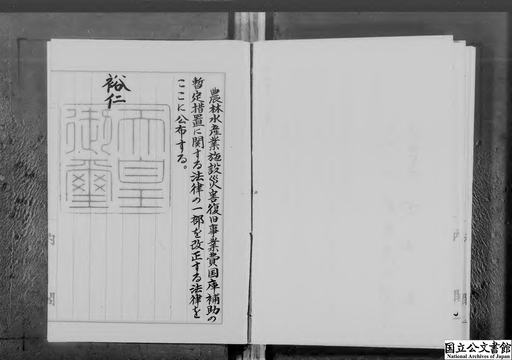 農林水産業施設災害復旧事業費国庫補助の
暫定措置に関する法律の一部を改正する法律を
ここに公布する。
裕仁
天皇
御璽
国立公文書館
National Archives of Japan